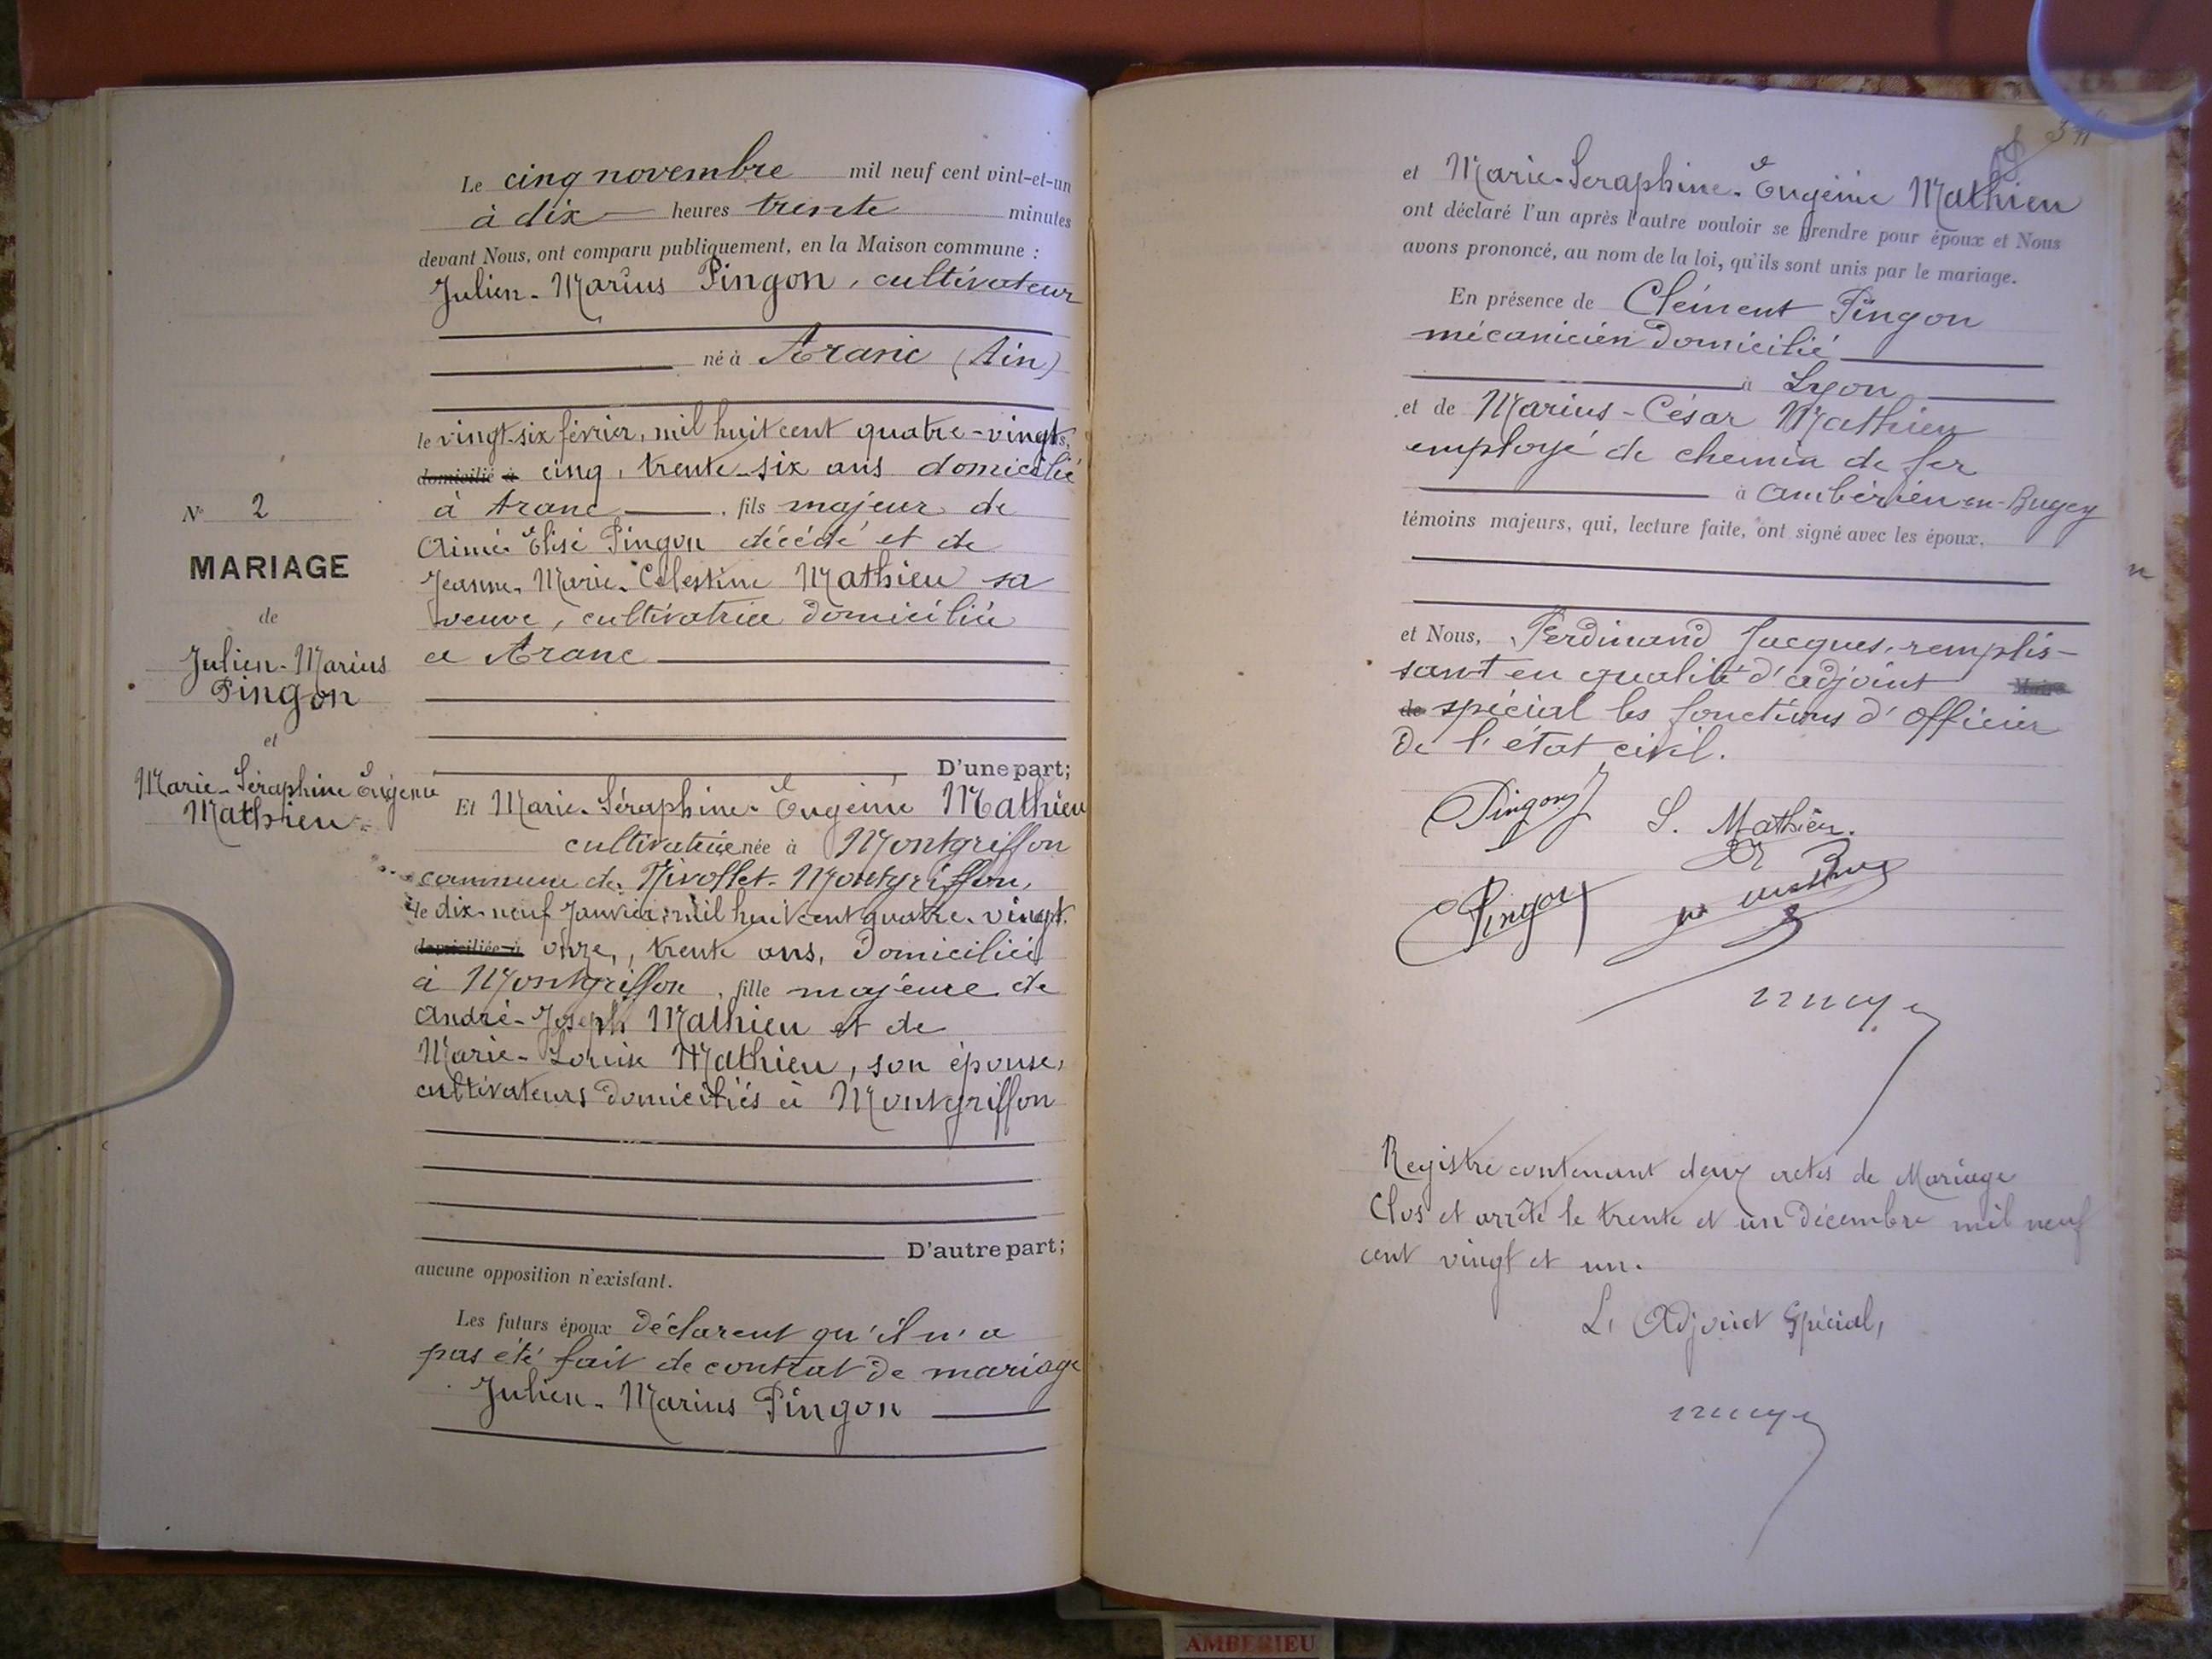 Le cinq novembre mil neuf cent vint-et-un
à dix heures trente minutes
devant Nous, ont comparu publiquement, en la Maison commune :
Julien-Marius Pingon, cultivateur
né à Aranc (Ain)
le vingt-six février, mil huit cent quatre-vingts,
domicilié à cinq, trente-six ans domicilié
à Aranc, fils majeur de
Aimé Elisé Pingon décédé et de
Jeanne-Marie-Célestine Mathieu sa
veuve, cultivatrice domiciliée
à Aranc
N° 2
MARIAGE
de
Julien-Marius
Pingon
et
Marie-Séraphine Eugénie
Mathieu
D'une part;
Et Marie-Séraphine-Eugénie Mathieu
cultivatrice née à Montgriffon
commune de Nivollet-Montgriffon,
le dix-neuf Janvier, mil huit cent quatre-vingt
domiciliée à onze, trente ans, domiciliée
à Montgriffon, fille majeure de
André-Joseph Mathieu et de
Marie-Louise Mathieu, son épouse,
cultivateurs domiciliés à Montgriffon
D'autre part;
aucune opposition n'existant.
Les futurs époux déclarent qu'il n'a
pas été fait de contrat de mariage
Julien-Marius Pingon
et Marie-Seraphine-Eugénie Mathieu
ont déclaré l'un après l'autre vouloir se prendre pour époux et Nous
avons prononcé, au nom de la loi, qu'ils sont unis par le mariage.
En présence de Clément Pingon
mécanicien domicilié
à Lyon
et de Marius-César Mathieu
employé de chemin de fer
à Ambérieu-en-Bugey
témoins majeurs, qui, lecture faite, ont signé avec les époux.
et Nous, Ferdinand Jacques, remplis-
sant en qualité d'adjoint Maire
de spécial les fonctions d'officier
de l'état civil.
Pingon J S. Mathieu.
Pingon
Registre contenant deux actes de Mariage
Clos et arrêté le trente et un décembre mil neuf
cent vingt et un.
L'Adjoint Spécial,
AMBERIEU